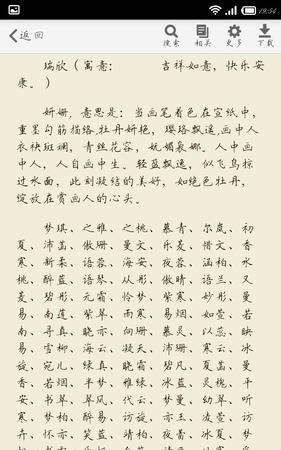 19:54
返回
搜索 相关 更多 下载
瑞欣（寓意： 吉祥如意，快乐安
康。）
妍姗，意思是：当画笔着色在宣纸中，
重墨勾筋描络，牡丹妍艳，璎珞飘逸，画中人
衣袂斑斓，青丝花容，妩媚袅娜。人中画
中人，人自画中生。轻盈飘逸，似飞鸟掠
过水面，此刻凝结的美好，如绝色牡丹，
绽放在赏画人的心头。
梦琪、之雅、之桃、慕青、尔岚、初
夏、沛菡、傲珊、曼文、乐菱、惜文、香
寒、新柔、语蓉、海安、夜蓉、涵柏、水
桃、醉蓝、语琴、从彤、傲晴、语兰、又
菱、碧彤、元霜、怜梦、紫寒、妙彤、曼
易、南莲、紫翠、雨寒、易烟、如萱、若
南、寻真、晓亦、向珊、慕灵、以蕊、映
易、雪柳、海云、凝天、沛珊、寒云、冰
旋、宛儿、绿真、晓霜、碧凡、夏菡、曼
香、若烟、半梦、雅绿、冰蓝、灵槐、平
安、书翠、翠风、代云、梦曼、幼翠、听
寒、梦柏、醉易、访旋、亦玉、凌萱、访
卉、怀亦、笑蓝、靖柏、夜蕾、冰夏、梦